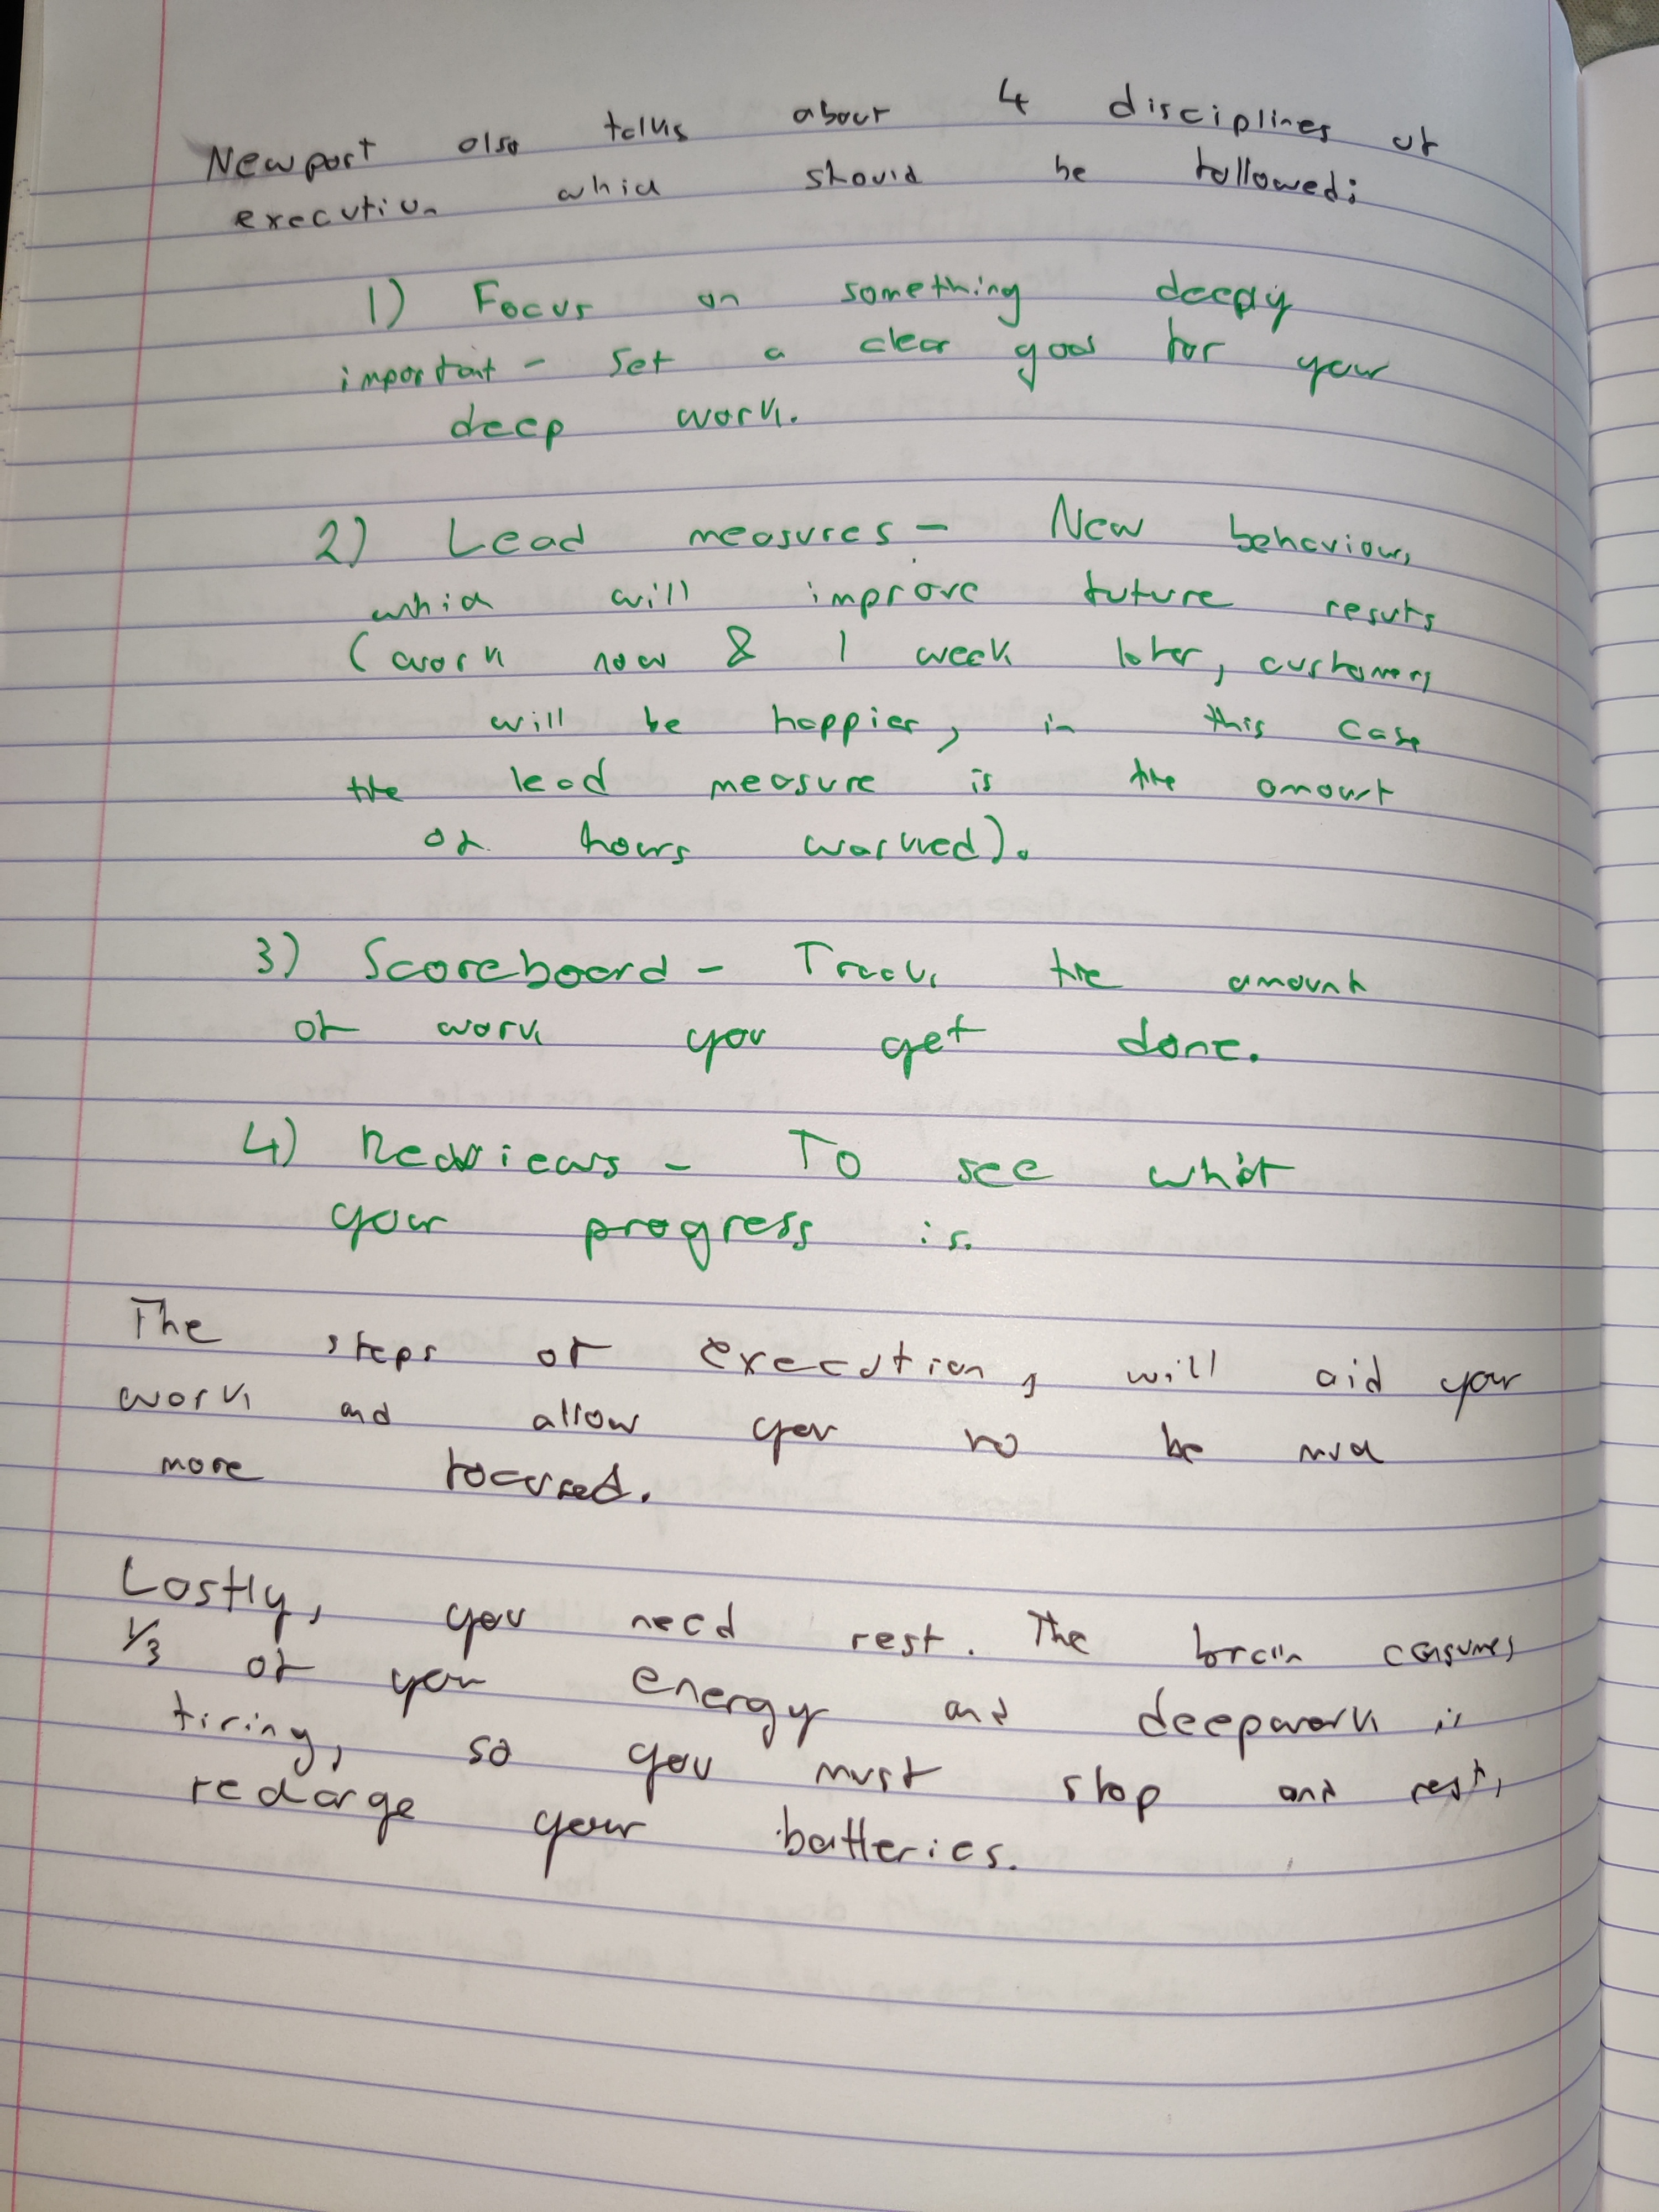 Newport also talks about 4 disciplines of
execution which should be followed:
1) Focus on something deeply
important - set a clear goal for your
deep work.
2) Lead measures - New behaviours
which will improve future results
(work now & 1 week later, customers
will be happier, in this case
the lead measure is the amount
of hours worked).
3) Scoreboard - Track the amount
of work you get done.
4) Reviews - To see what
your progress is.
The steps of execution, will aid your
work and allow you to be much
more focused.
Lastly, you need rest. The brain consumes
1/3 of your energy and deepwork is
tiring, so you must stop and rest,
recharge your batteries.